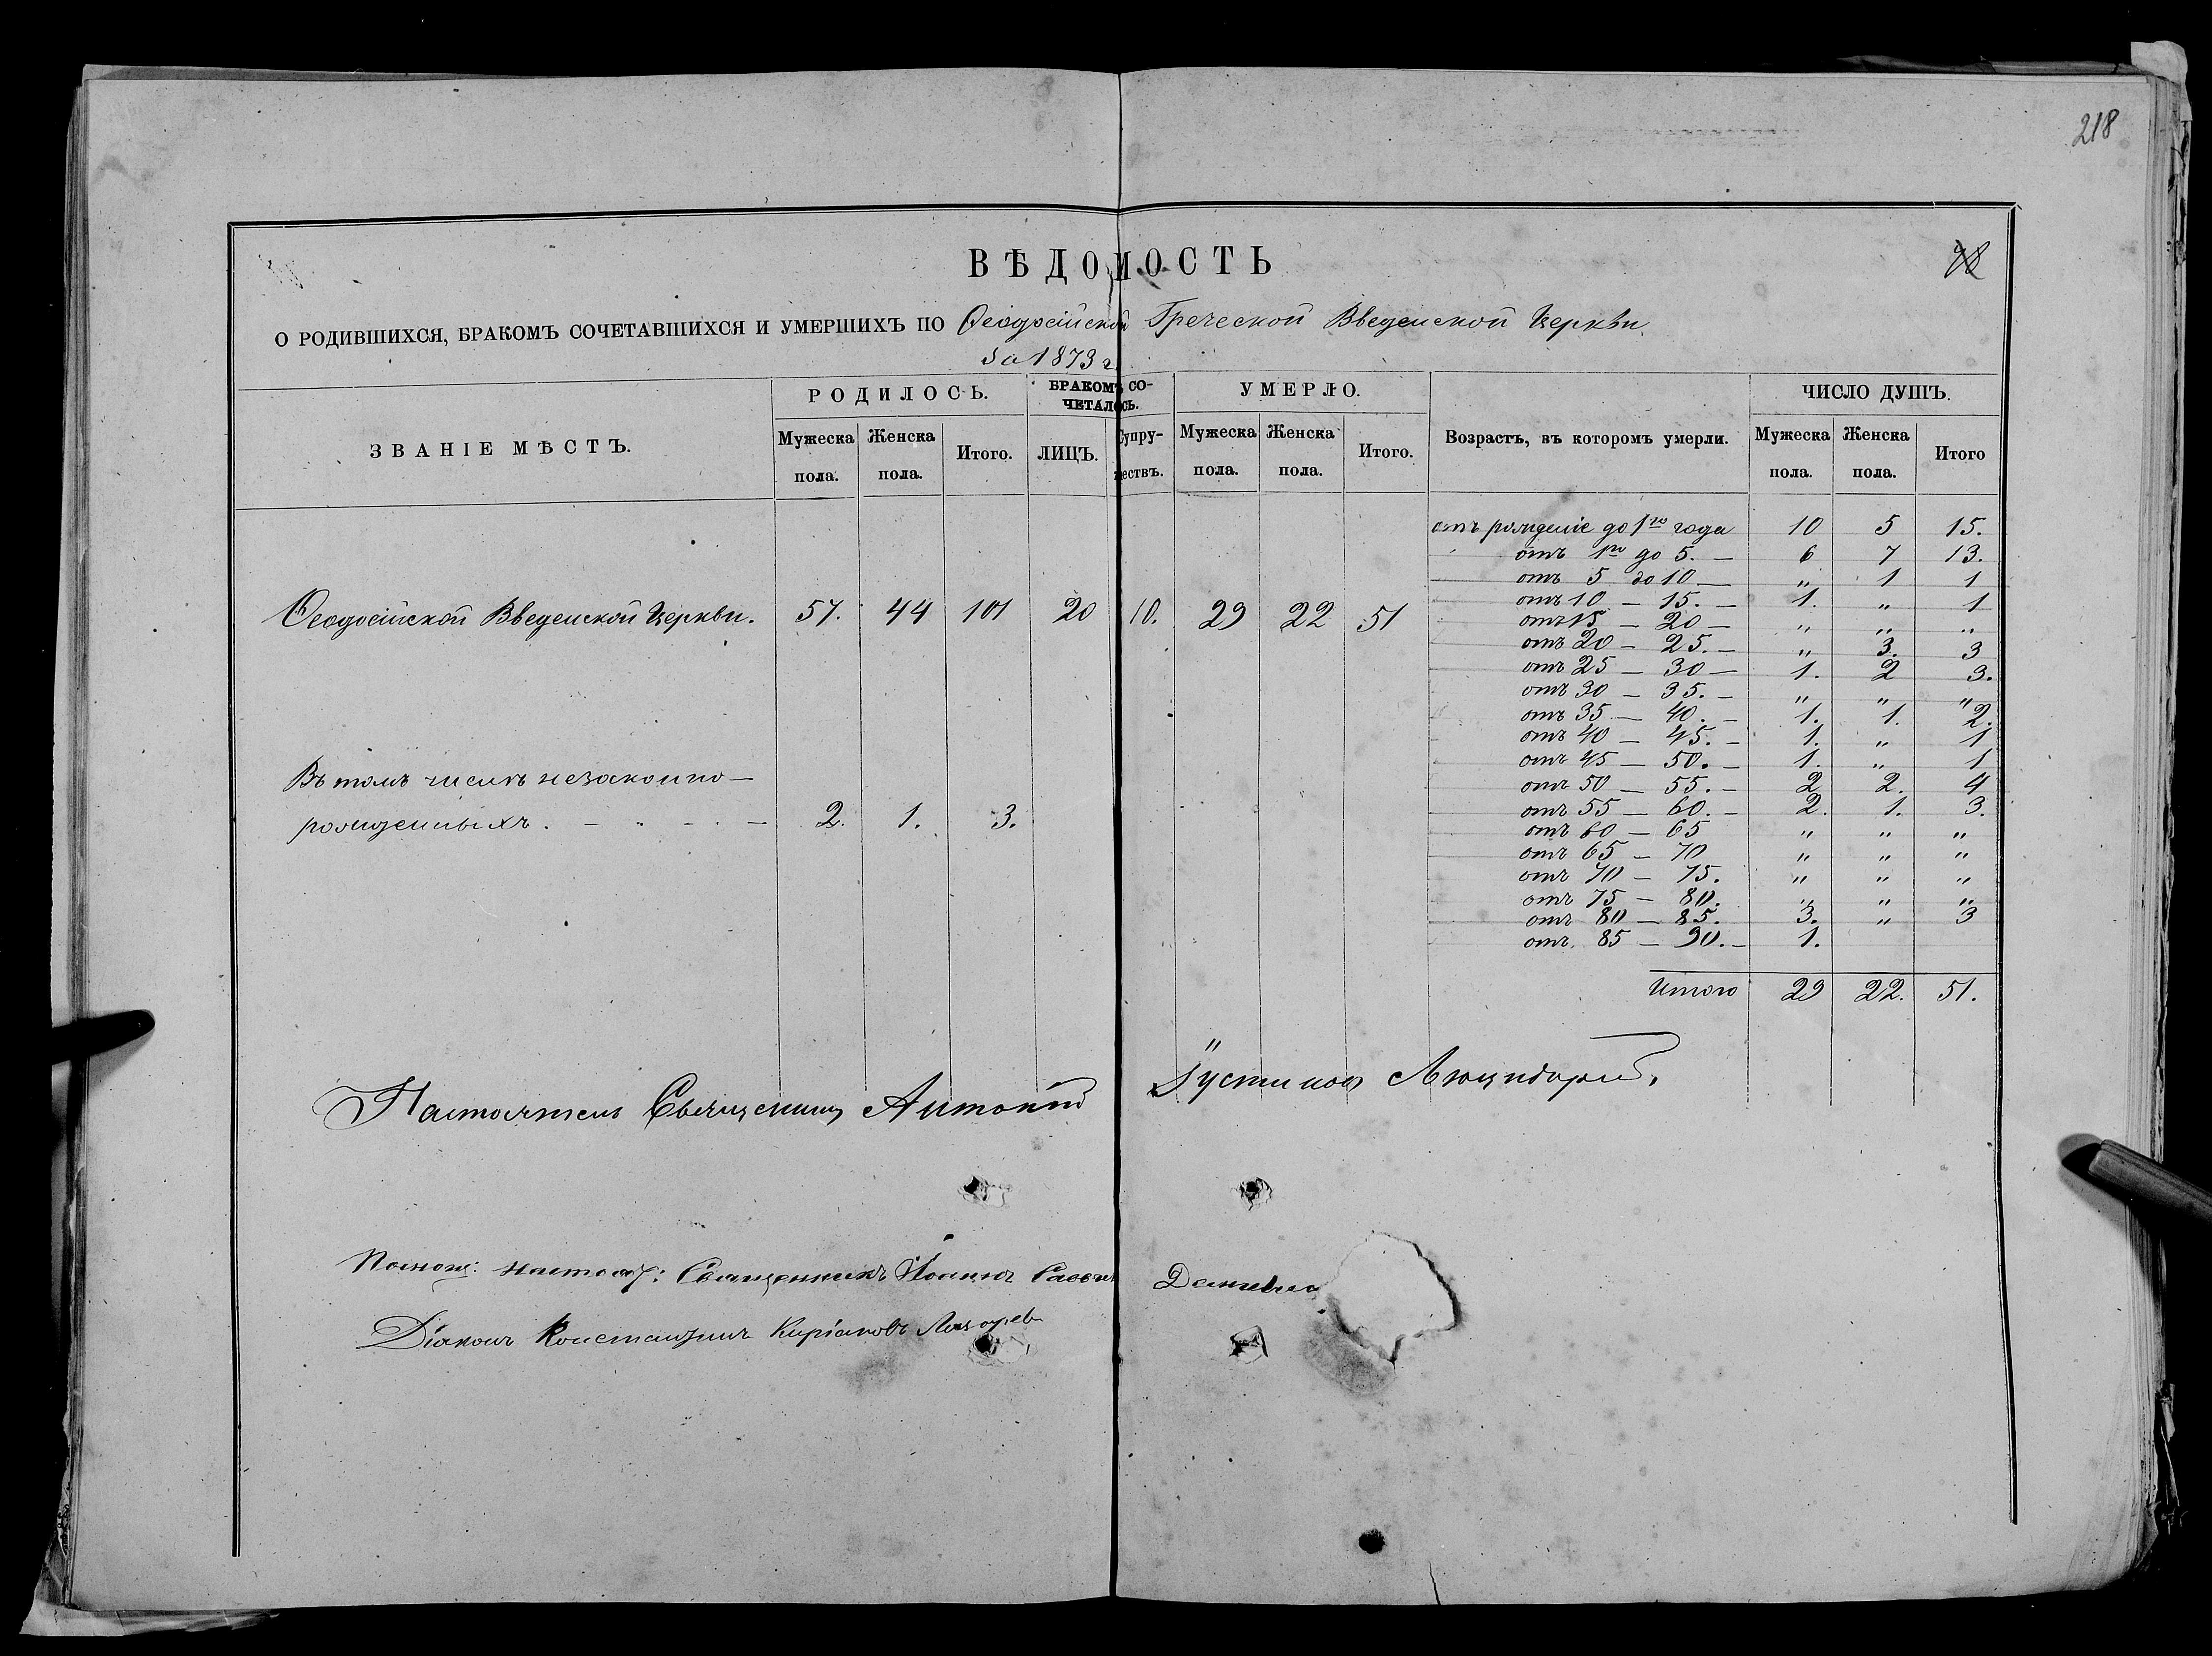 218
ВѢДОМОСТЬ
98
О РОДИВШИХСЯ, БРАКОМЪ СОЧЕТАВШИХСЯ И УМЕРШИХЪ ПО Ѳеодосійской Греческой Введенской Церкви
За 1873 г.
ЗВАНІЕ МѢСТЪ. РОДИЛОСЬ. БРАКОМЪ СОЧЕТАЛОСЬ. УМЕРЛО. Возрастъ, въ которомъ умерли. ЧИСЛО ДУШЪ.
Мужеска пола. Женска пола. Итого. ЛИЦЪ. Супружествъ. Мужеска пола. Женска пола. Итого. Мужеска пола. Женска пола. Итого
Ѳеодосійской Введенской Церкви. 57. 44 101 20 10. 29 22 51
Въ томъ числѣ незаконно-
рожденныхъ. 2. 1. 3.
отъ рожденіе до 1го года 10 5 15.
отъ 1го до 5. — 6 7 13.
отъ 5 до 10 — " 1 1
отъ 10 — 15. — 1. " 1
отъ 15 — 20 — " " "
отъ 20 — 25. — " 3. 3
отъ 25 — 30 — 1. 2 3.
отъ 30 — 35. — " " "
отъ 35 — 40. — 1. 1. 2.
отъ 40 — 45. — 1. " 1
отъ 45 — 50. — 1. " 1
отъ 50 — 55. — 2 2. 4
отъ 55 — 60. — 2. 1. 3.
отъ 60 — 65 " " "
отъ 65 — 70 " " "
отъ 70 — 75. " " "
отъ 75 — 80. " " "
отъ 80 — 85. 3. " 3
отъ 85 — 90. — 1.
Итого 29 22. 51.
Настоятель Священникъ Антоній
Помощ: настоят: Священникъ Іоаннъ Саввичъ
Діаконъ Константинъ Киріаковъ Лазарев